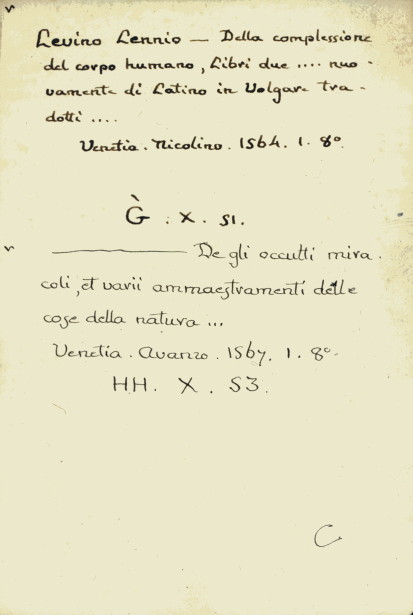 Levino Lennio — Della complessione
del corpo humano, Libri due .... nuo -
vamente di Latino in Volgare tra -
dotti ....
Venetia . Nicolino . 1564 . 1 . 8º.
G̀ . X . 51.
———— De gli occulti mira .
coli, et varii ammaestramenti delle
cose della natura ...
Venetia . Avanzo . 1567 . 1 . 8º.
HH . X . 53.
C